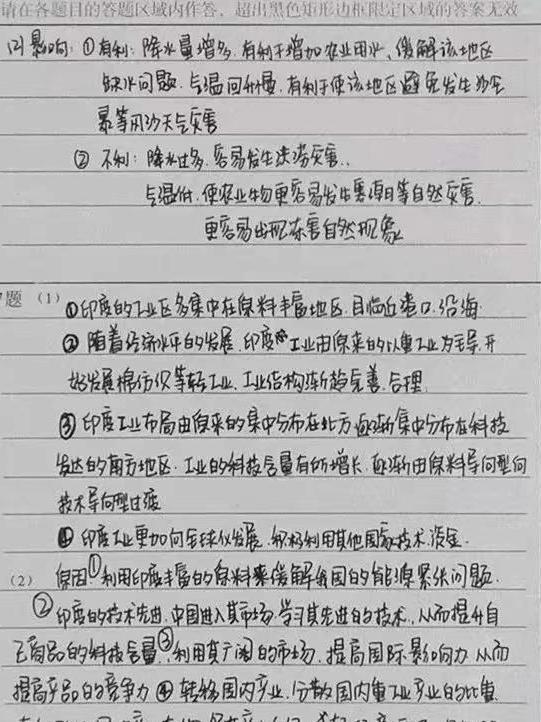 请在各题目的答题区域内作答，超出黑色矩形边框限定区域的答案无效
(2) 影响：①有利：降水量增多，有利于增加农业用水、缓解该地区
缺水问题．气温回升慢．有利于使该地区避免发生沙尘
暴等风沙天气灾害
② 不利：降水过多．容易发生洪涝灾害．
气温低．使农业生物更容易发生寒潮等自然灾害．
更容易出现冻害自然现象
题 (1) ①印度的工业区多集中在原料丰富地区．且临近港口．沿海
② 随着经济水平的发展．印度工业由原来的以重工业为主导．开
始发展棉纺织等轻工业．工业结构渐趋完善．合理．
③ 印度工业布局由原来的集中分布在北方逐渐集中分布在科技
发达的南方地区．工业的科技含量有所增长．逐渐由原料导向型向
技术导向型过渡
④ 印度工业更加向全球化发展．积极利用其他国家技术．资金．
(2) 原因①利用印度丰富的原料来缓解我国的能源紧张问题．
②印度的技术先进．中国进入其市场．学习其先进的技术．从而提升自
己商品的科技含量③利用其广阔的市场．提高国际影响力．从而
提高产品的竞争力 ④ 转移国内产业．分散国内重工业产业的比重